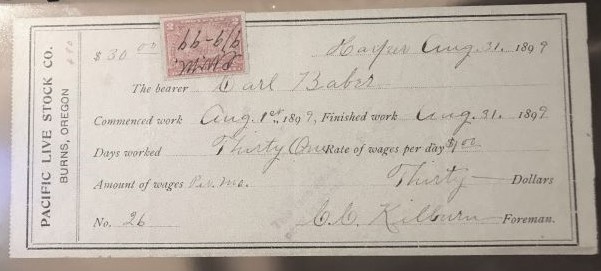 PACIFIC LIVE STOCK CO.
BURNS, OREGON
$ 30 00
Harper Aug. 31. 1899
The bearer Carl Baber
Commenced work Aug. 1st., 1899, Finished work Aug. 31. 1899.
Days worked Thirty One Rate of wages per day $1.00
Amount of wages Per. Mo. Thirty Dollars
No. 26 C.C. Kilburn Foreman.